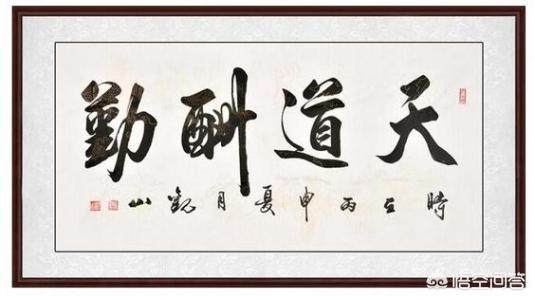 天道酬勤
時在丙申夏月觀山
悟空问答